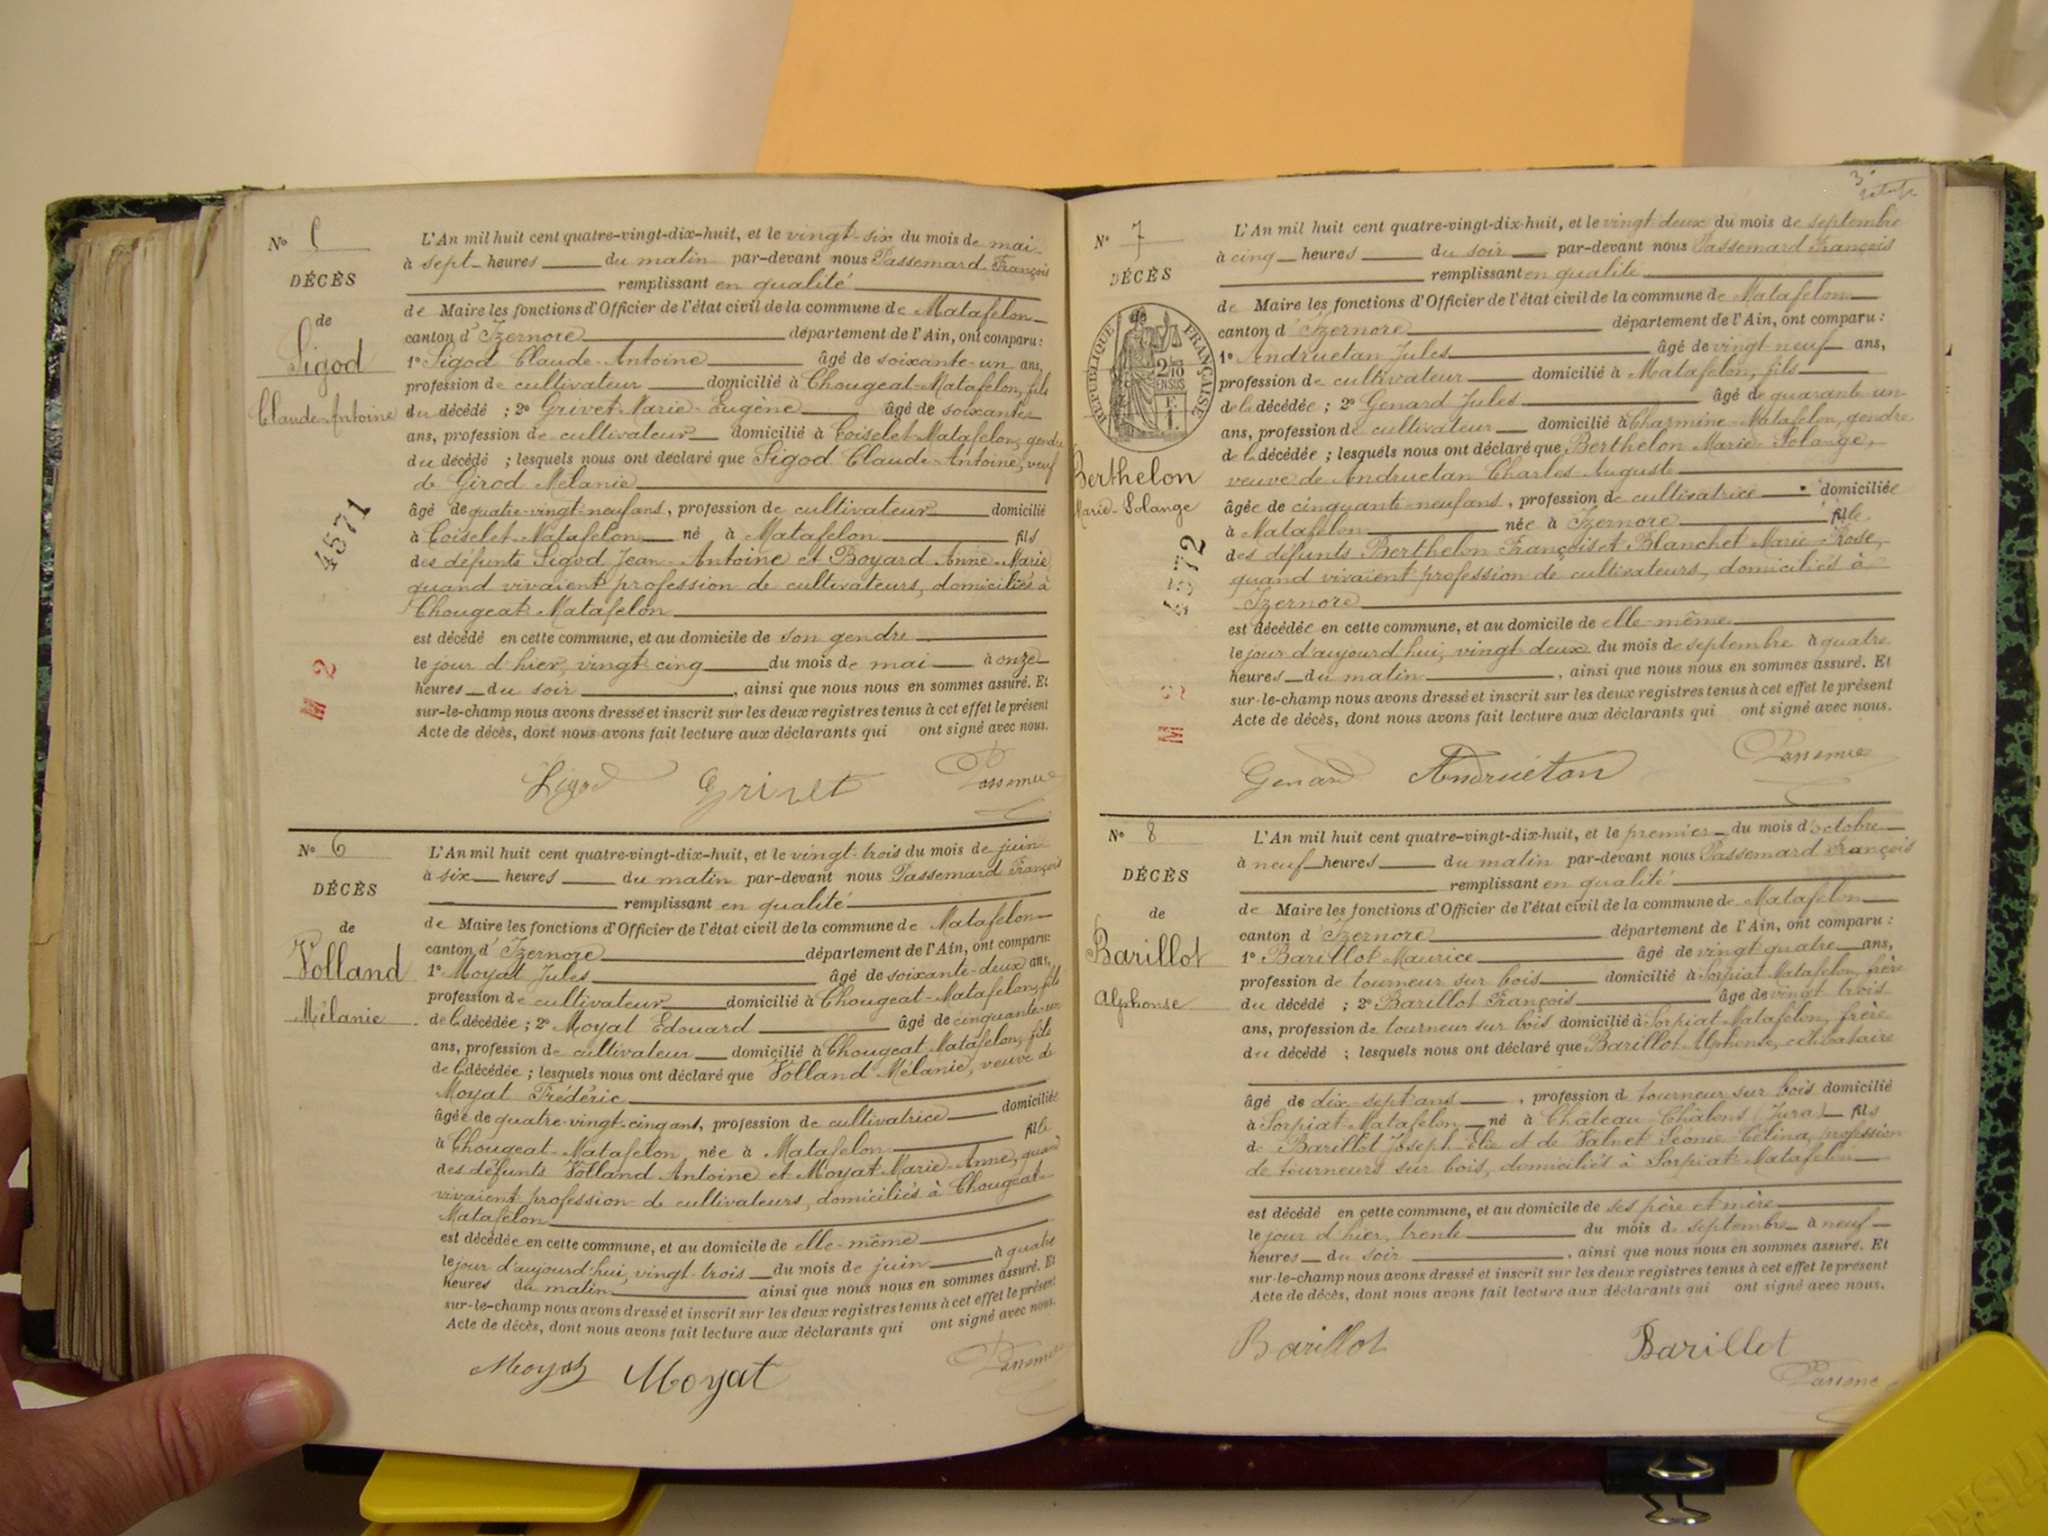 N° 5
DÉCÈS
de
Sigod
Claude-Antoine
4571
M 2
L'An mil huit cent quatre-vingt-dix-huit, et le vingt-six du mois de mai
à sept heures du matin par-devant nous Passemard François
remplissant en qualité
de Maire les fonctions d'Officier de l'état civil de la commune de Matafelon
canton d'Izernore département de l'Ain, ont comparu:
1° Sigod Claude-Antoine âgé de soixante-un ans,
profession de cultivateur domicilié à Chougeat-Matafelon, fils
du décédé ; 2° Grivet Marie-Eugène âgé de soixante
ans, profession de cultivateur domicilié à Coiselet-Matafelon, gendre
du décédé ; lesquels nous ont déclaré que Sigod Claude-Antoine, veuf
de Girod Mélanie
âgé de quatre-vingt-neuf ans, profession de cultivateur domicilié
à Coiselet-Matafelon né à Matafelon fils
des défunts Sigod Jean-Antoine et Boyard Anne-Marie
quand vivaient profession de cultivateurs, domiciliés à
Chougeat-Matafelon
est décédé en cette commune, et au domicile de son gendre
le jour d'hier, vingt cinq du mois de mai à onze
heures du soir , ainsi que nous nous en sommes assuré. Et
sur-le-champ nous avons dressé et inscrit sur les deux registres tenus à cet effet le présent
Acte de décès, dont nous avons fait lecture aux déclarants qui ont signé avec nous.
Sigod Grivet
N° 6
DÉCÈS
de
Volland
Mélanie
L'An mil huit cent quatre-vingt-dix-huit, et le vingt-trois du mois de juin
à six heures du matin par-devant nous Passemard François
remplissant en qualité
de Maire les fonctions d'Officier de l'état civil de la commune de Matafelon
canton d'Izernore département de l'Ain, ont comparu:
1° Moyat Jules âgé de soixante-deux ans,
profession de cultivateur domicilié à Chougeat-Matafelon, fils
de la décédée ; 2° Moyat Edouard âgé de cinquante-un
ans, profession de cultivateur domicilié à Chougeat Matafelon, fils
de la décédée ; lesquels nous ont déclaré que Volland Mélanie, veuve de
Moyat Frédéric
âgée de quatre-vingt-cinq ans, profession de cultivatrice domiciliée
à Chougeat-Matafelon, née à Matafelon fille
des défunts Volland Antoine et Moyat Marie-Anne, quand
vivaient profession de cultivateurs, domiciliés à Chougeat-
Matafelon
est décédée en cette commune, et au domicile de elle-même
le jour d'aujourd'hui, vingt-trois du mois de juin à quatre
heures du matin ainsi que nous nous en sommes assuré. Et
sur-le-champ nous avons dressé et inscrit sur les deux registres tenus à cet effet le présent
Acte de décès, dont nous avons fait lecture aux déclarants qui ont signé avec nous.
Moyat Moyat
3e
N° 7
DÉCÈS
de
RÉPUBLIQUE FRANÇAISE
2/10
EN SUS
1 F.
Berthelon
Marie-Solange
4572
M 2
L'An mil huit cent quatre-vingt-dix-huit, et le vingt deux du mois de septembre
à cinq heures du soir par-devant nous Passemard François
remplissant en qualité
de Maire les fonctions d'Officier de l'état civil de la commune de Matafelon
canton d'Izernore département de l'Ain, ont comparu:
1° Andruetan Jules âgé de vingt neuf ans,
profession de cultivateur domicilié à Matafelon, fils
de la décédée ; 2° Genard Jules âgé de quarante un
ans, profession de cultivateur domicilié à Charmine-Matafelon, gendre
de la décédée ; lesquels nous ont déclaré que Berthelon Marie-Solange,
veuve de Andruetan Charles-Auguste
âgée de cinquante-neuf ans, profession de cultivatrice domiciliée
à Matafelon née à Izernore fille
des défunts Berthelon François et Blanchet Marie-Rose,
quand vivaient profession de cultivateurs, domiciliés à
Izernore
est décédée en cette commune, et au domicile de elle-même
le jour d'aujourd'hui, vingt deux du mois de septembre à quatre
heures du matin , ainsi que nous nous en sommes assuré. Et
sur-le-champ nous avons dressé et inscrit sur les deux registres tenus à cet effet le présent
Acte de décès, dont nous avons fait lecture aux déclarants qui ont signé avec nous.
Genard Andruétan
N° 8
DÉCÈS
de
Barillot
Alphonse
L'An mil huit cent quatre-vingt-dix-huit, et le premier du mois d'octobre
à neuf heures du matin par-devant nous Passemard François
remplissant en qualité
de Maire les fonctions d'Officier de l'état civil de la commune de Matafelon
canton d'Izernore département de l'Ain, ont comparu:
1° Barillot Maurice âgé de vingt quatre ans,
profession de tourneur sur bois domicilié à Sorpiat-Matafelon, frère
du décédé ; 2° Barillot François âgé de vingt trois
ans, profession de tourneur sur bois domicilié à Sorpiat-Matafelon, frère
du décédé ; lesquels nous ont déclaré que Barillot Alphonse, célibataire
âgé de dix-sept ans , profession d tourneur sur bois domicilié
à Sorpiat-Matafelon né à Château-Châlons (Jura) fils
de Barillot Joseph-Elie et de Valnet Léonie-Célina, profession
de tourneurs sur bois, domiciliés à Sorpiat-Matafelon
est décédé en cette commune, et au domicile de ses père et mère
le jour d'hier, trente du mois de septembre à neuf
heures du soir , ainsi que nous nous en sommes assuré. Et
sur-le-champ nous avons dressé et inscrit sur les deux registres tenus à cet effet le présent
Acte de décès, dont nous avons fait lecture aux déclarants qui ont signé avec nous.
Barillot Barillot